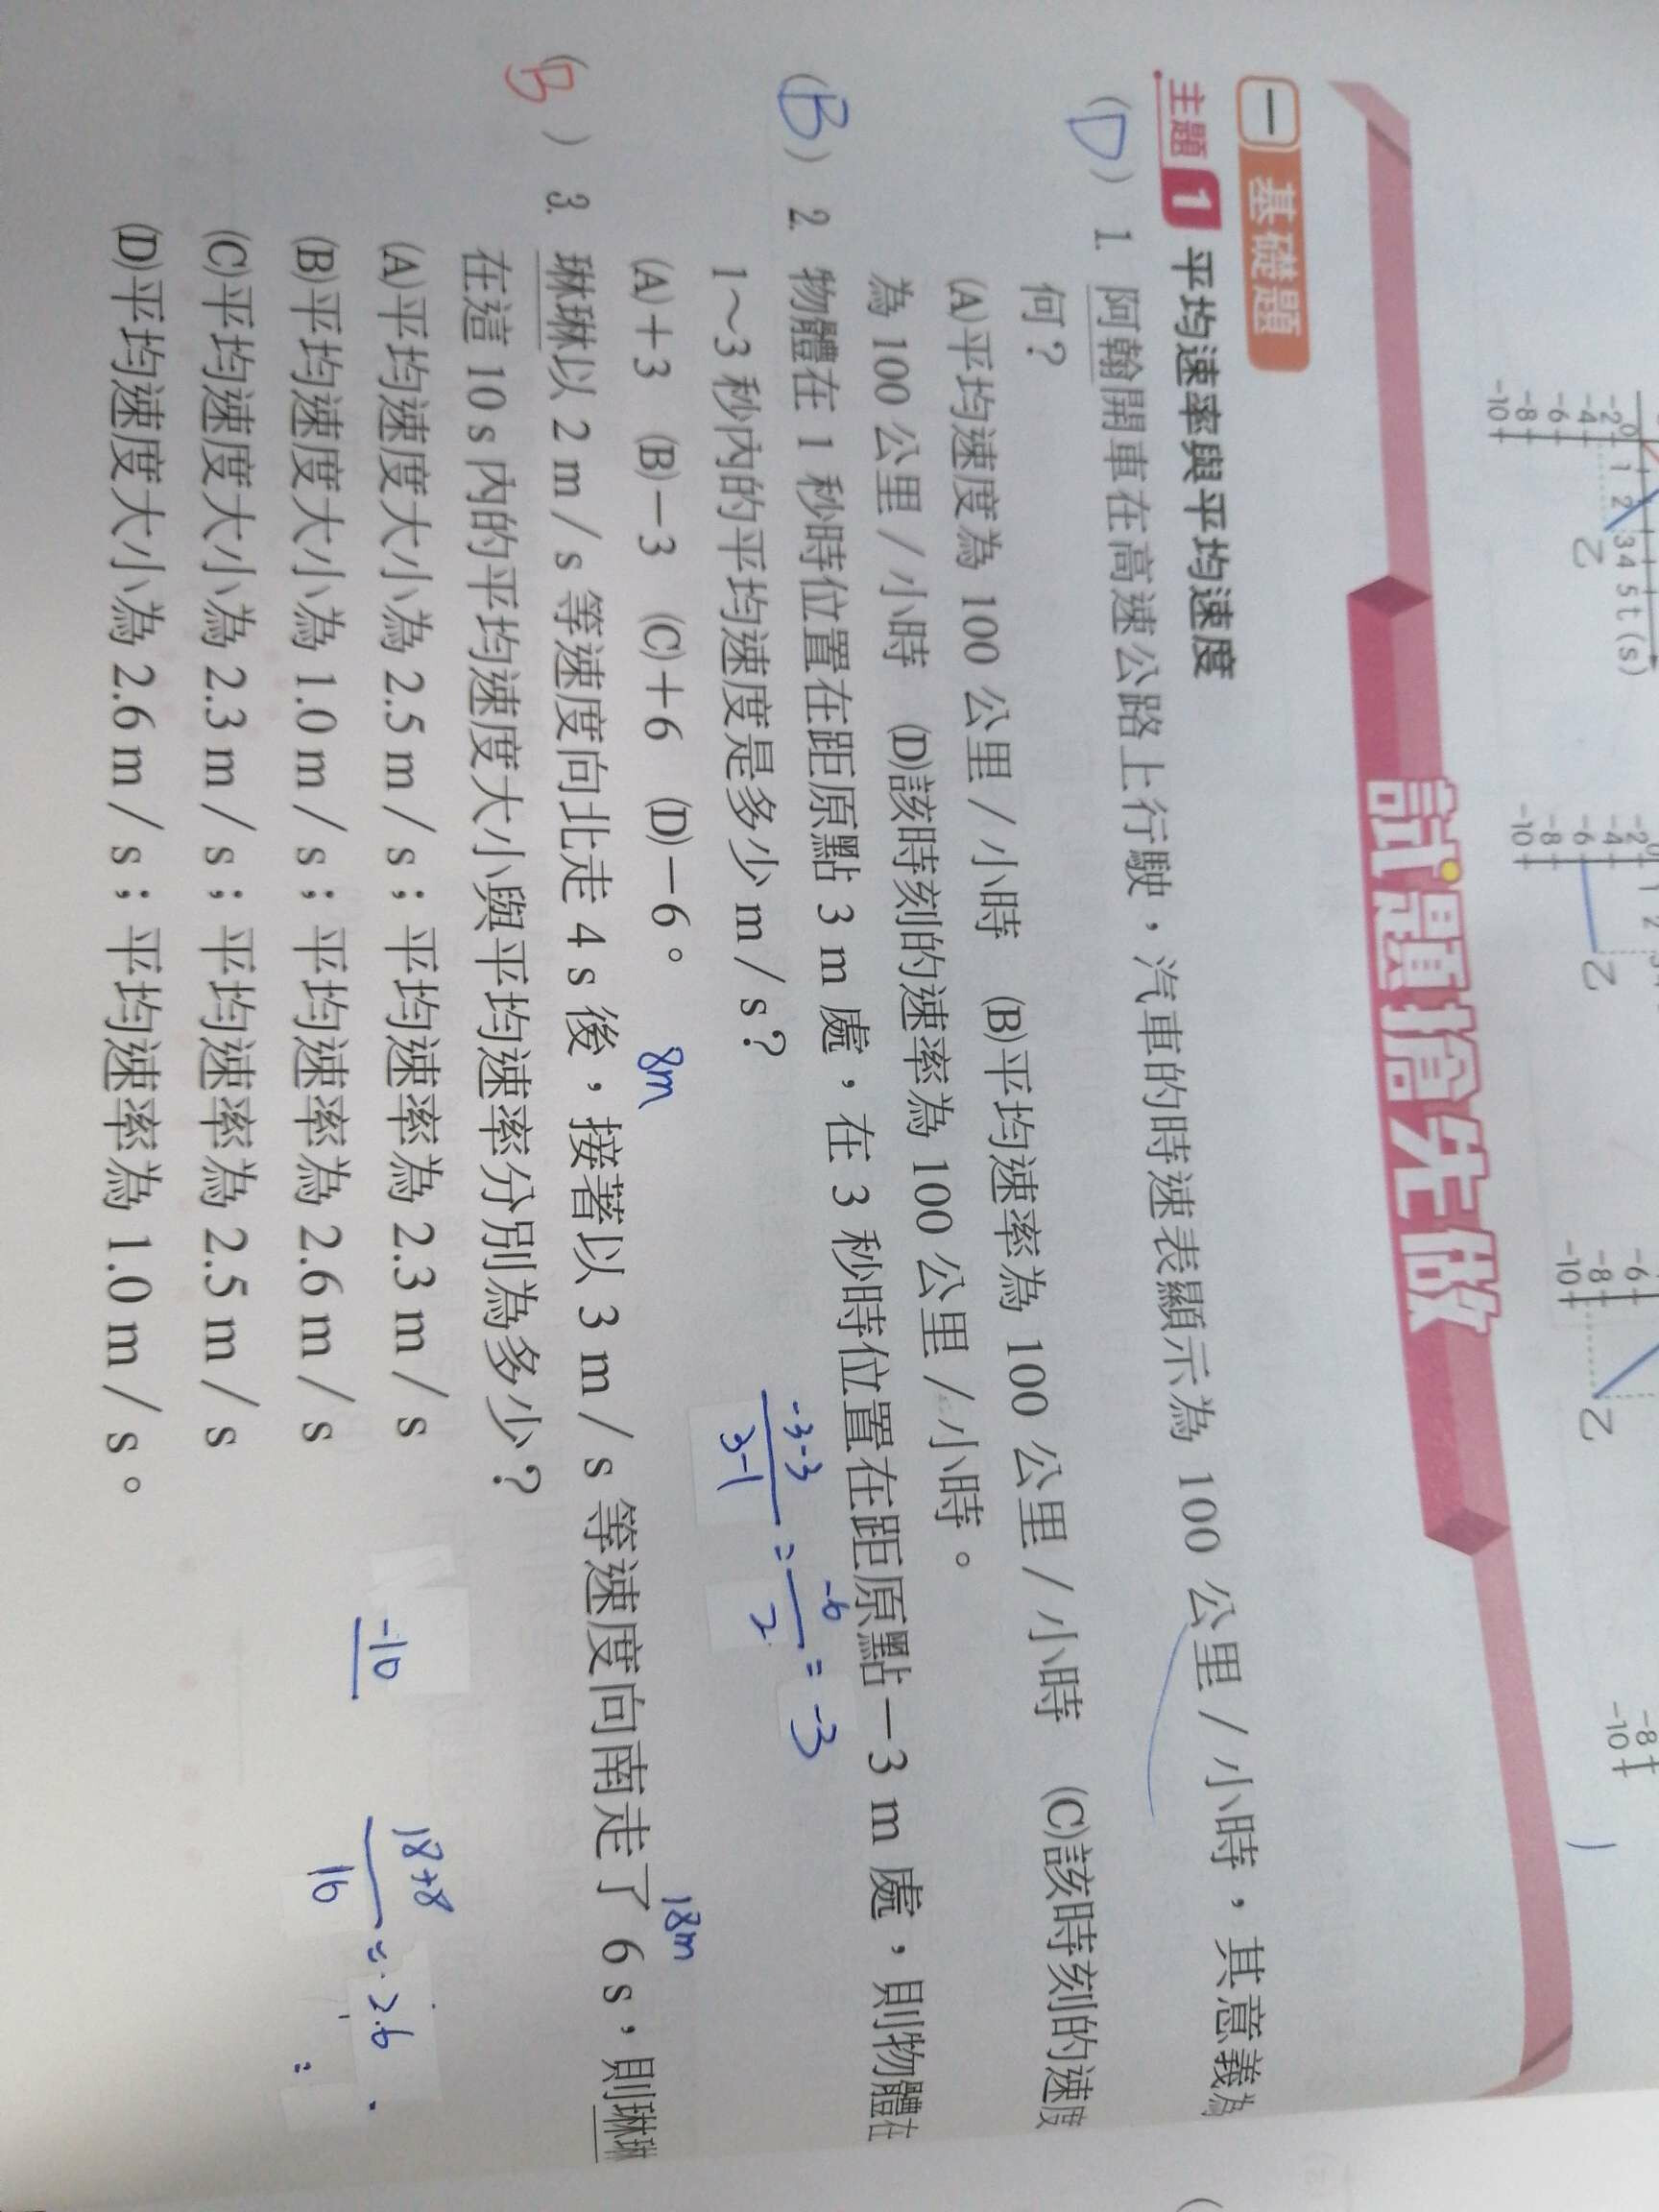 -2
-4
-6
-8
-10
0 1 2 3 4 5 t(s)
乙
-2
-4
-6
-8
-10
1 2
乙
-6
-8
-10
乙
-8
-10
試題搶先做
一 基礎題
主題 1 平均速率與平均速度
(D) 1. 阿翰開車在高速公路上行駛，汽車的時速表顯示為 100 公里/小時，其意義為
何？
(A)平均速度為 100 公里/小時 (B)平均速率為 100 公里/小時 (C)該時刻的速度
為 100 公里/小時 (D)該時刻的速率為 100 公里/小時。
(B) 2. 物體在 1 秒時位置在距原點 3 m 處，在 3 秒時位置在距原點－3 m 處，則物體在
1～3 秒內的平均速度是多少 m/s？
-3-3
3-1
=
-6
2
= -3
(A)＋3 (B)－3 (C)＋6 (D)－6。
8m
18m
(B) 3. 琳琳以 2 m/s 等速度向北走 4 s 後，接著以 3 m/s 等速度向南走了 6 s，則琳琳
在這 10 s 內的平均速度大小與平均速率分別為多少？
(A)平均速度大小為 2.5 m/s；平均速率為 2.3 m/s
(B)平均速度大小為 1.0 m/s；平均速率為 2.6 m/s
(C)平均速度大小為 2.3 m/s；平均速率為 2.5 m/s
(D)平均速度大小為 2.6 m/s；平均速率為 1.0 m/s。
-10
18+8
10
= 2.6